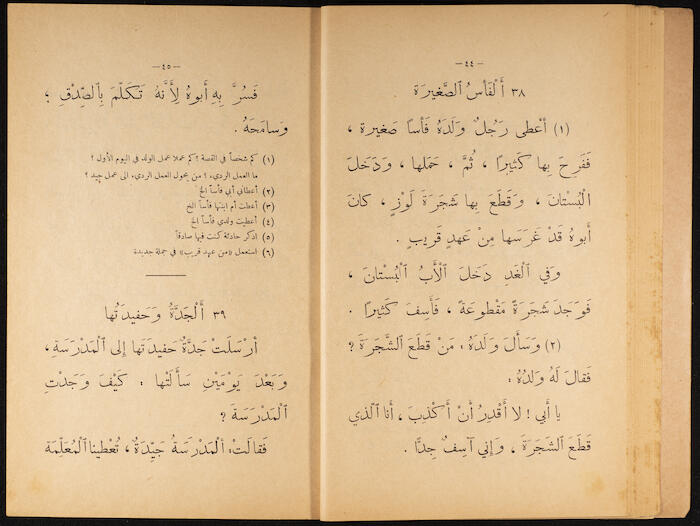 -٤٤-
٣٨ أَلْفَأْسُ الصَّغِيرَةُ
(١) أَعْطى رَجُلٌ وَلَدَهُ فَأْسًا صَغِيرة ،
فَفَرِحَ بِها كَثِيرًا ، ثُمَّ ، حَمَلَها ، وَدَخَلَ
الْبُسْتانَ ، وَقَطَعَ بِها شَجَرَةَ لَوْزٍ ، كانَ
أَبوهُ قَدْ غَرَسَها مِنْ عَهدٍ قَريبٍ .
وَفي الْغَدِ دَخَلَ الْأَبُ الْبُسْتانَ ،
فَوَجَدَ شَجَرَةً مَقْطوعَةً ، فَأَسِفَ كَثيرًا .
(٢) وَسَأَلَ وَلَدَهُ : مَنْ قَطَعَ الشَّجَرَةَ ؟
فَقالَ لَهُ وَلَدُهُ :
يا أَبي ! لا أَقْدِرُ أَنْ أَكْذِبَ ، أَنا الَّذي
قَطَعَ الشَّجَرَةَ ، وَإِني آسِفٌ جِدًّا .
-٤٥-
فَسُرَّ بِهِ أَبوهُ لِأَنَّهُ تَكَلَّمَ بِالصِّدْقِ ؛
وَسامَحَهُ .
(١) كم شخصاً في القصة ؟ كم عملا عمل الولد في اليوم الأول ؟
ما العمل الرديء ؟ من يحول العمل الرديء الى عمل جيد ؟
(٢) أعطاني أبي فأساً الخ
(٣) أعطت أم ابنتها فأساً الخ
(٤) أعطيت ولدي فأساً الخ
(٥) اذكر حادثة كنت فيها صادقاً
(٦) استعمل «من عهد قريب» في جملة جديدة
٣٩ أَلْجَدَّةُ وَحَفيدَتُها
أَرْسَلَتْ جَدَّةٌ حَفيدَتَها إِلى الْمَدْرَسَةِ ،
وَبَعْدَ يَوْمَيْنِ سَأَلَتْها : كَيْفَ وَجَدْتِ
الْمَدْرَسَةَ ؟
فَقالَتْ : اَلْمَدْرَسَةُ جَيِّدَةٌ ، تُعْطينا الْمُعَلِّمَة